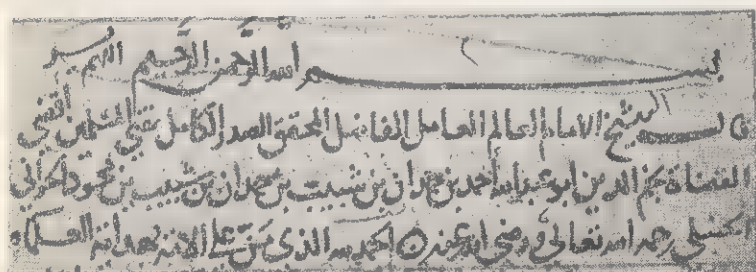 بسم الله الرحمن الرحيم اللهم يسر
قال الشيخ الامام العالم العامل الفاضل المحقق الصدر الكامل مفتي المسلمين اقضى
القضاة نجم الدين ابو عبد الله احمد بن حمدان بن شبيب بن حمدان بن شبيب بن محمود الحراني
الحنبلي رحمه الله تعالى ورضي عنه الحمد لله الذي من على الامة بهداية العلماء